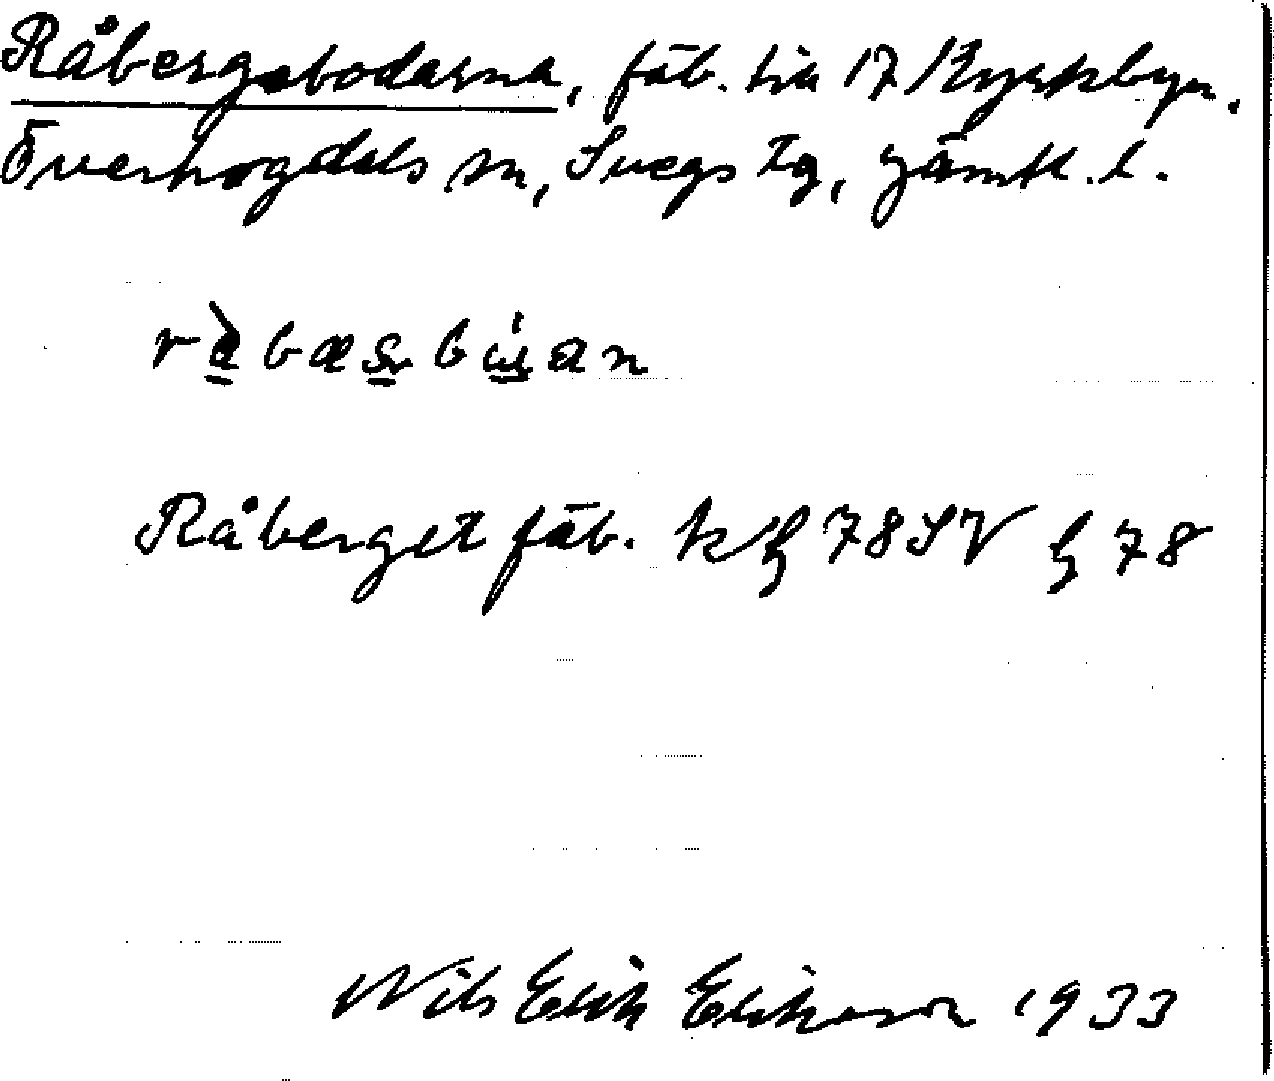 Råbergsbodarna, fäb. till 17 Kyrkbyn,
Överhogdals sn, Svegs tg, Jämtl. l.
Råberget fäb. k 78 SV 78
Nils Erik Eriksson 1933